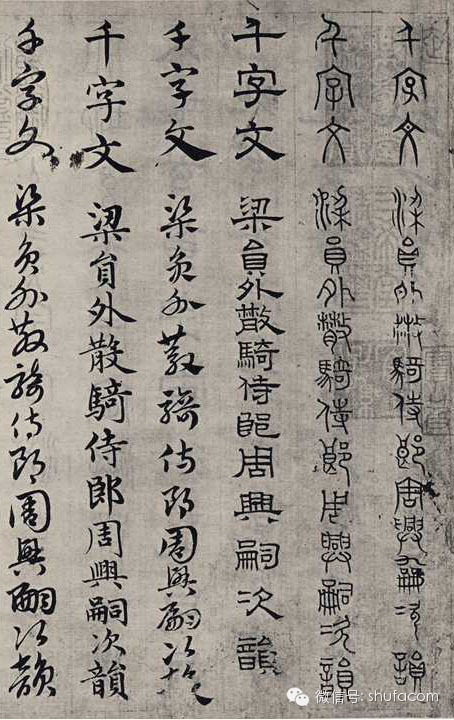 千字文 梁員外散騎侍郎周興嗣次韻
千字文 梁員外散騎侍郎周興嗣次韻
千字文 梁員外散騎侍郎周興嗣次韻
千字文 梁員外散騎侍郎周興嗣次韻
千字文 梁員外散騎侍郎周興嗣次韻
千字文 梁員外散騎侍郎周興嗣次韻
微信号: shufacom